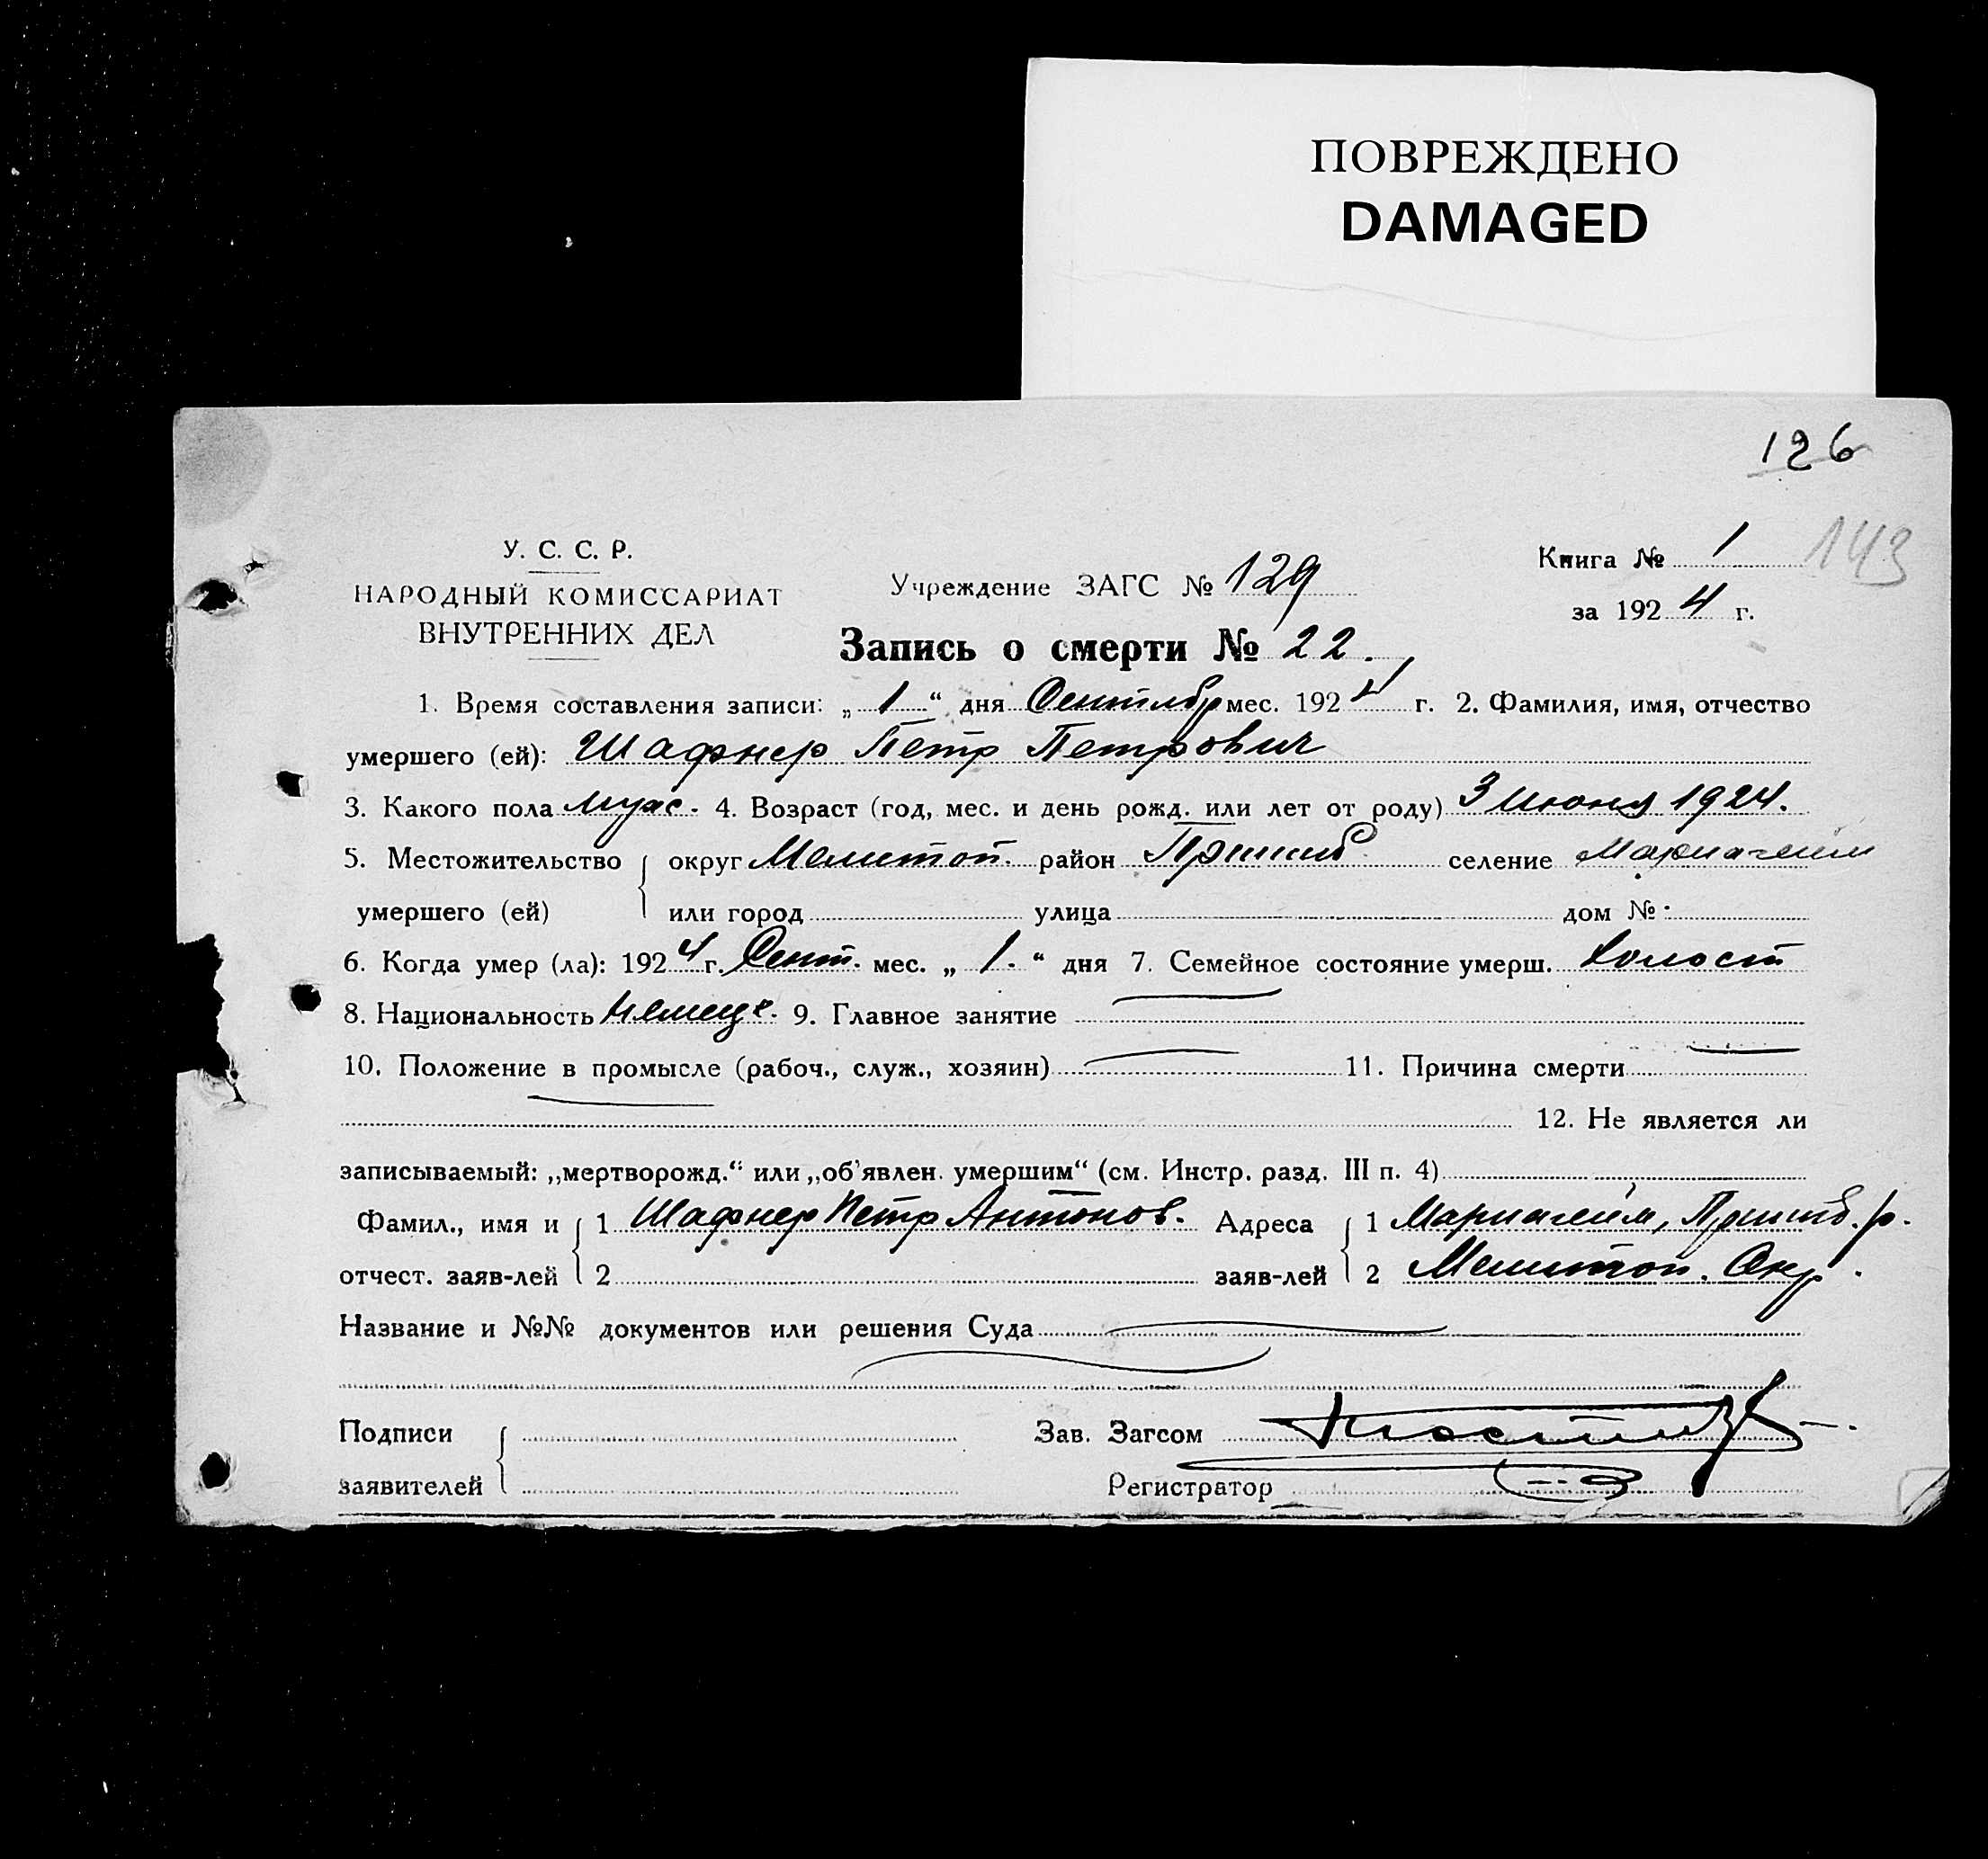 ПОВРЕЖДЕНО
DAMAGED
126
У. С. С. Р.
НАРОДНЫЙ КОМИССАРИАТ
ВНУТРЕННИХ ДЕЛ
Учреждение ЗАГС № 129
Книга № 1 143
за 1924 г.
Запись о смерти № 22.
1. Время составления записи: „ 1 “ дня Сентябр мес. 1924 г. 2. Фамилия, имя, отчество
умершего (ей): Шафнер Петр Петрович
3. Какого пола муж. 4. Возраст (год, мес. и день рожд. или лет от роду) 3 июня 1924.
5. Местожительство округ Мелитоп. район Пришиб. селение Мариагейм
умершего (ей) или город улица дом №
6. Когда умер (ла): 1924 г. Сент. мес. „ 1. “ дня 7. Семейное состояние умерш. холост
8. Национальность немецк. 9. Главное занятие
10. Положение в промысле (рабоч., служ., хозяин) 11. Причина смерти
12. Не является ли
записываемый: „мертворожд.“ или „об'явлен. умершим“ (см. Инстр. разд. III п. 4)
Фамил., имя и 1 Шафнер Петр Антонов. Адреса 1 Мариагейм, Пришиб. р.
отчест. заяв-лей 2 заяв-лей 2 Мелитоп. Окр.
Название и №№ документов или решения Суда
Подписи Зав. Загсом
заявителей Регистратор